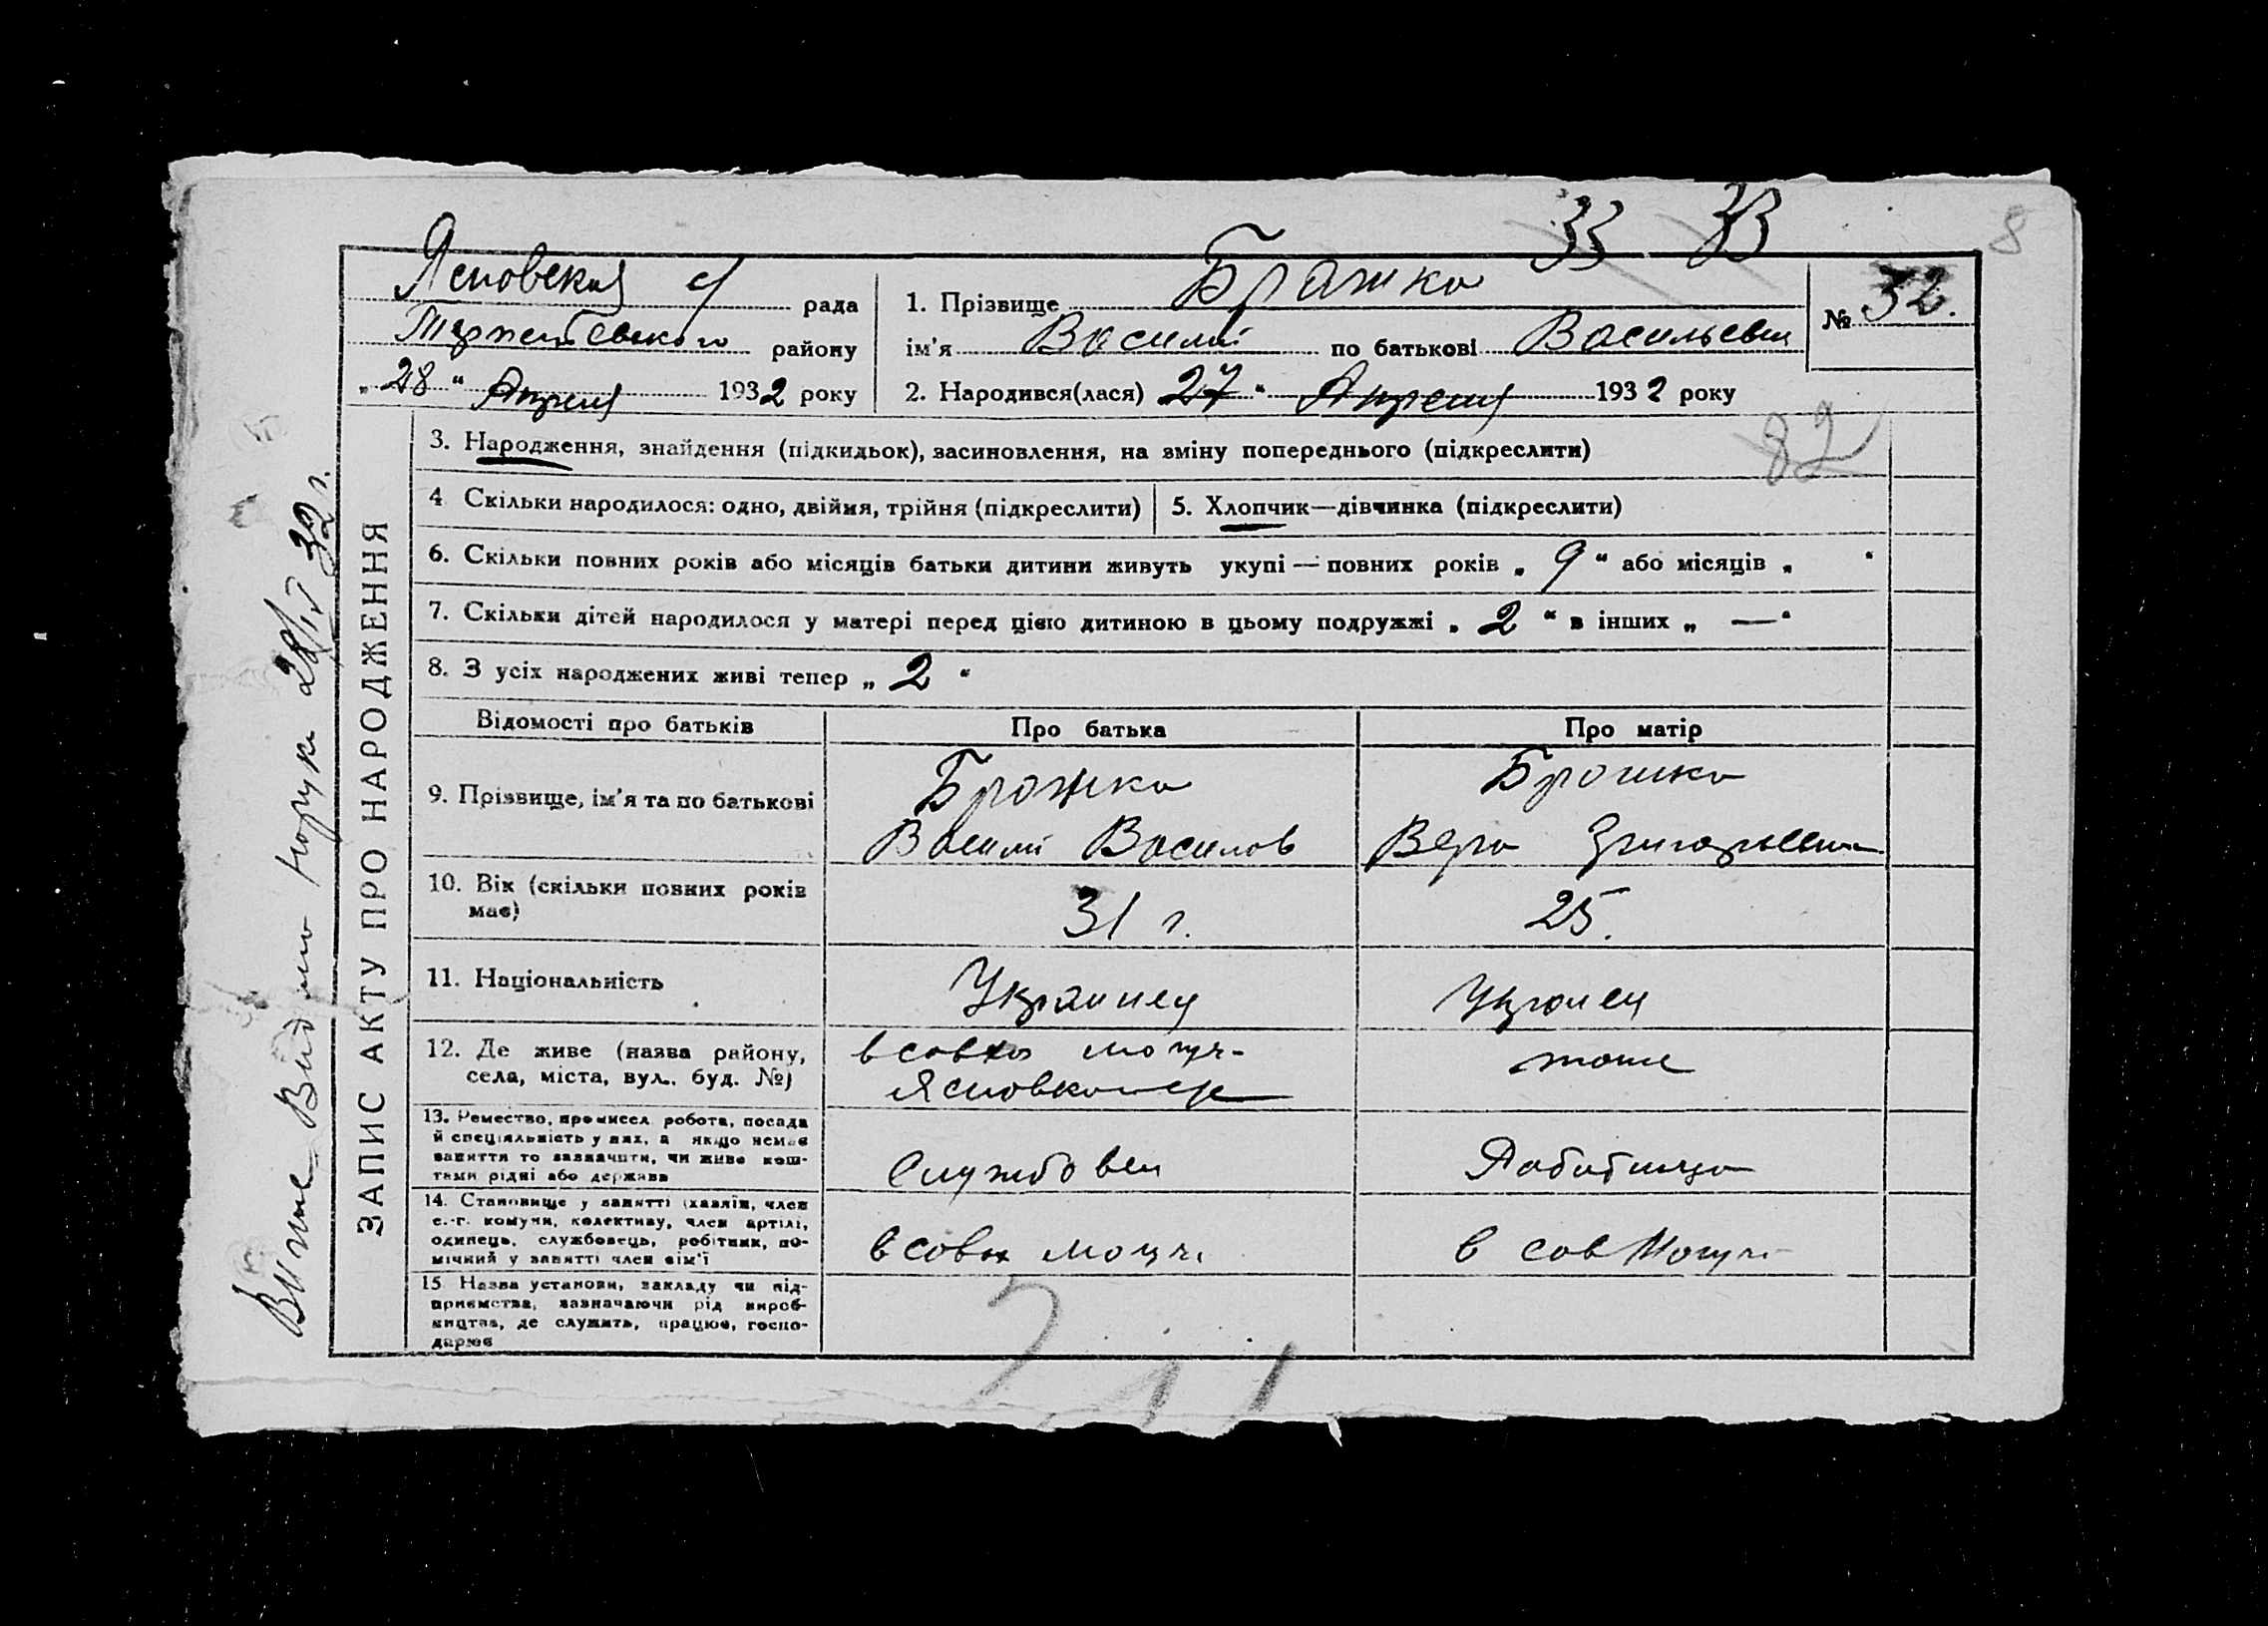 33 33 8
Ясновская с/ рада
району
„28“ Апреля 1932 року
1. Прізвище Бражко
ім’я Василий по батькові Васильевич
2. Народився(лася) 27 “ Апреля 1932 року
№ 32.
82
ЗАПИС АКТУ ПРО НАРОДЖЕННЯ
3. Народження, знайдення (підкидьок), засиновлення, на зміну попереднього (підкреслити)
4 Скільки народилося: одно, двійня, трійня (підкреслити)
5. Хлопчик—дівчинка (підкреслити)
6. Скільки повних років або місяців батьки дитини живуть укупі — повних років „ 9 “ або місяців „ “
7. Скільки дітей народилося у матері перед цією дитиною в цьому подружжі „ 2 “ в інших „ — “
8. З усіх народжених живі тепер „ 2 “
Відомості про батьків Про батька Про матір
9. Прізвище, ім’я та по батькові
Бражко
Василий Василов
Брашко
Вера Григорьевна
10. Вік (скільки повних років має)
31 г.
25.
11. Національність
Украинец
12. Де живе (назва району, села, міста, вул. буд. №)
тоже
13. Ремество, промисел робота, посада й спеціяльність у них, а якщо немає заняття то зазначити, чи живе коштами рідні або держави
Службовец
Работница
14. Становище у занятті (хазяїн, член с.-г. комуни, колективу, член артілі, одинець, службовець, робітник, помічний у занятті член сім’ї
в сов
15 Назва установи, закладу чи підприємства, зазначаючи рід виробництва, де служить, працює, господарює
28/IV 32 г.